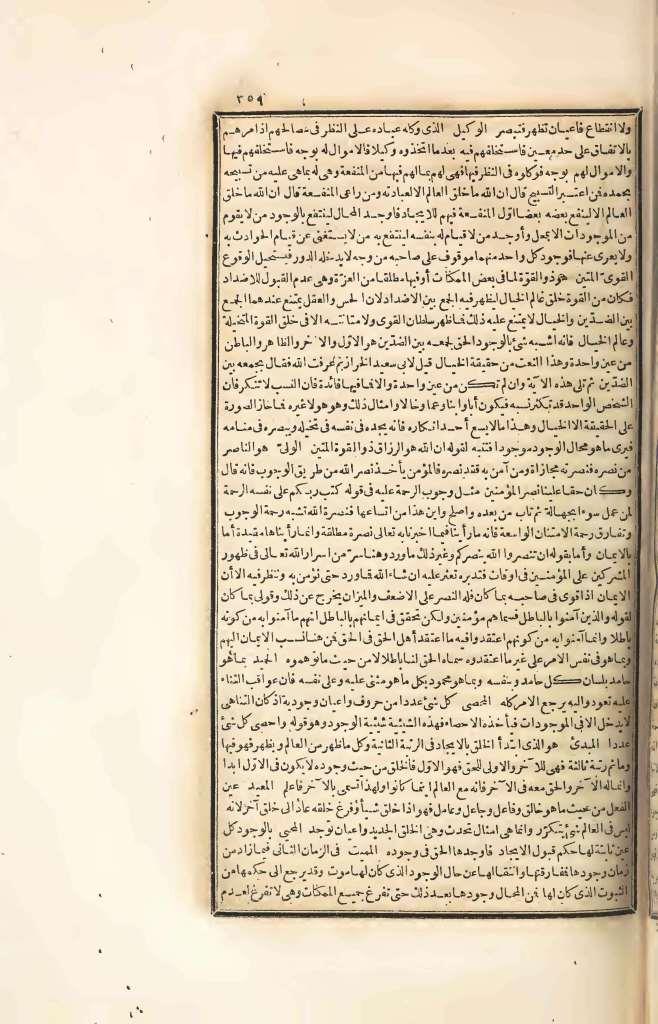 ٣٥٩
ولا انقطاع فاعيان تظهر فتبصر الوكيل الذى وكله عباده على النظر فى مصالحهم اذ أمرهم
بالانفاق على حد معين فاستخلفهم فيه بعدما اتخذوه وكيلا فالاموال له بوجه فاستخلفهم فيها
والاموال لهم بوجه فوكلوه فى النظر فيها فهى لهم بما لهم فيها من المنفعة وهى له بما هى عليه من تسبيحه
بحمده فمن اعتبر التسبيح قال ان الله ما خلق العالم الا لعبادته ومن راعى المنفعة قال ان الله ما خلق
العالم الا لينفع بعضه بعضا أول المنفعة فيهم للايجاد فاوجد المحال لينتفع بالوجود من لا يقوم
من الموجودات الا بمحل وأوجد من لا قيام له بنفسه لينتفع به من لا يستغنى عن قيام الحوادث به
ولا يعرى عنها فوجود كل واحد منهما موقوف على صاحبه من وجه لا يدخله الدور فيستحيل الوقوع
القوى المتين هو ذو القوة لما فى بعض الممكنات أو فيها مطلقا من العزة وهى عدم القبول للاضداد
فكان من القوة خلق عالم الخيال ليظهر فيه الجمع بين الاضداد لان الحس والعقل يمتنع عندهما الجمع
بين الضدين والخيال لا يمتنع عليه ذلك فما ظهر سلطان القوى ولا متانته الا فى خلق القوة المتخيلة
وعالم الخيال فانه أشبه شئ بالوجود الحق لجمعه بين الضدين هو الاول والآخر والظاهر والباطن
من عين واحدة وهذا النعت من حقيقة الخيال قيل لابى سعيد الخراز بم عرفت الله فقال بجمعه بين
الضدين ثم تلى هذه الآية وان لم تكن من عين واحدة والا فما فيها فائدة فان النسب لا تنكر فان
الشخص الواحد قد تكثر نسبه فيكون أبا وابنا وعما وخالا وأمثال ذلك وهو هو لا غيره فما حاز الصورة
على الحقيقة الا الخيال وهذا ما لا يسع أحدا انكاره فانه يجده فى نفسه فى تخيله ويبصره فى منامه
فيرى ما هو محال الوجود موجودا فتنبه لقوله ان الله هو الرزاق ذو القوة المتين الولى هو الناصر
من نصره فنصرته مجازاة ومن آمن به فقد نصره فالمؤمن يأخذ نصر الله من طريق الوجوب فانه قال
وكان حقا علينا نصر المؤمنين مثل وجوب الرحمة عليه فى قوله كتب ربكم على نفسه الرحمة
لمن عمل سوءا بجهالة ثم تاب من بعده وأصلح وأين هذا من اتساعها فنصرة الله تشبه رحمة الوجوب
وتفارق رحمة الامتنان الواسعة فانه ما رأينا فيما أخبرنا به تعالى نصرة مطلقة وانما رأيناها مقيدة أما
بالايمان وأما بقوله ان تنصروا الله ينصركم وغير ذلك ما ورد وهنا سر من اسرار الله تعالى فى ظهور
المشركين على المؤمنين فى أوقات فتدبره تعثر عليه ان شاء الله فما ورد حتى نؤمن به وننظر فيه الا أن
الايمان اذا قوى فى صاحبه بما كان فله النصر على الاضعف والميزان يخرج عن ذلك وقولى بما كان
لقوله والذين آمنوا بالباطل فسماهم مؤمنين ولكن تحقق فى ايمانهم بالباطل انهم ما آمنوا به من كونه
باطلا وانما آمنوا به من كونهم اعتقدوا فيه ما اعتقد أهل الحق فى الحق فمن هنا نسب الايمان اليهم
وبما هو فى نفس الامر على غير ما اعتقدوه سماه الحق لنا باطلا لا من حيث ما توهموه الحميد بما هو
حامد بلسان كل حامد وبنفسه وبما هو محمود بكل ما هو مثنى عليه وعلى نفسه فان عواقب الثناء
عليه تعود واليه يرجع الامر كله المحصى كل شئ عددا من حروف وأعيان وجودية اذ كان التناهى
لا يدخل الا فى الموجودات فيأخذه الاحصاء فهذه الشيئية شيئية الوجود وهو قوله واحصى كل شئ
عددا المبدئ هو الذى ابتدأ الخلق بالايجاد فى الرتبة الثانية وكل ما ظهر من العالم ويظهر فهو فيها
وما ثم رتبة ثالثة فهى الآخر والاولى للحق فهو الاول فالخلق من حيث وجوده لا يكون فى الاول أبدا
وانما له الآخر والحق معه فى الآخر فانه مع العالم أينما كانوا ولهذا تسمى بالآخر فاعلم المعيد عين
الفعل من حيث ما هو خالق وفاعل وجاعل وعامل فهو اذا خلق شيأ وفرغ خلقه عاد الى خلق آخر لانه
ليس فى العالم شئ يتكرر وانما هى أمثال تحدث وهى الخلق الجديد وأعيان توجد المحيى بالوجود كل
عين ثابتة لها حكم قبول الايجاد فاوجدها الحق فى وجوده المميت فى الزمان الثانى فما زاد من
زمان وجودها فمفارقتها وانتقالها عن حال الوجود الذى كان لها موت وقد يرجع الى حكمها من
الثبوت الذى كان لها فمن المحال وجودها بعد ذلك حتى تفرغ جميع الممكنات وهى لا تفرغ لعدم